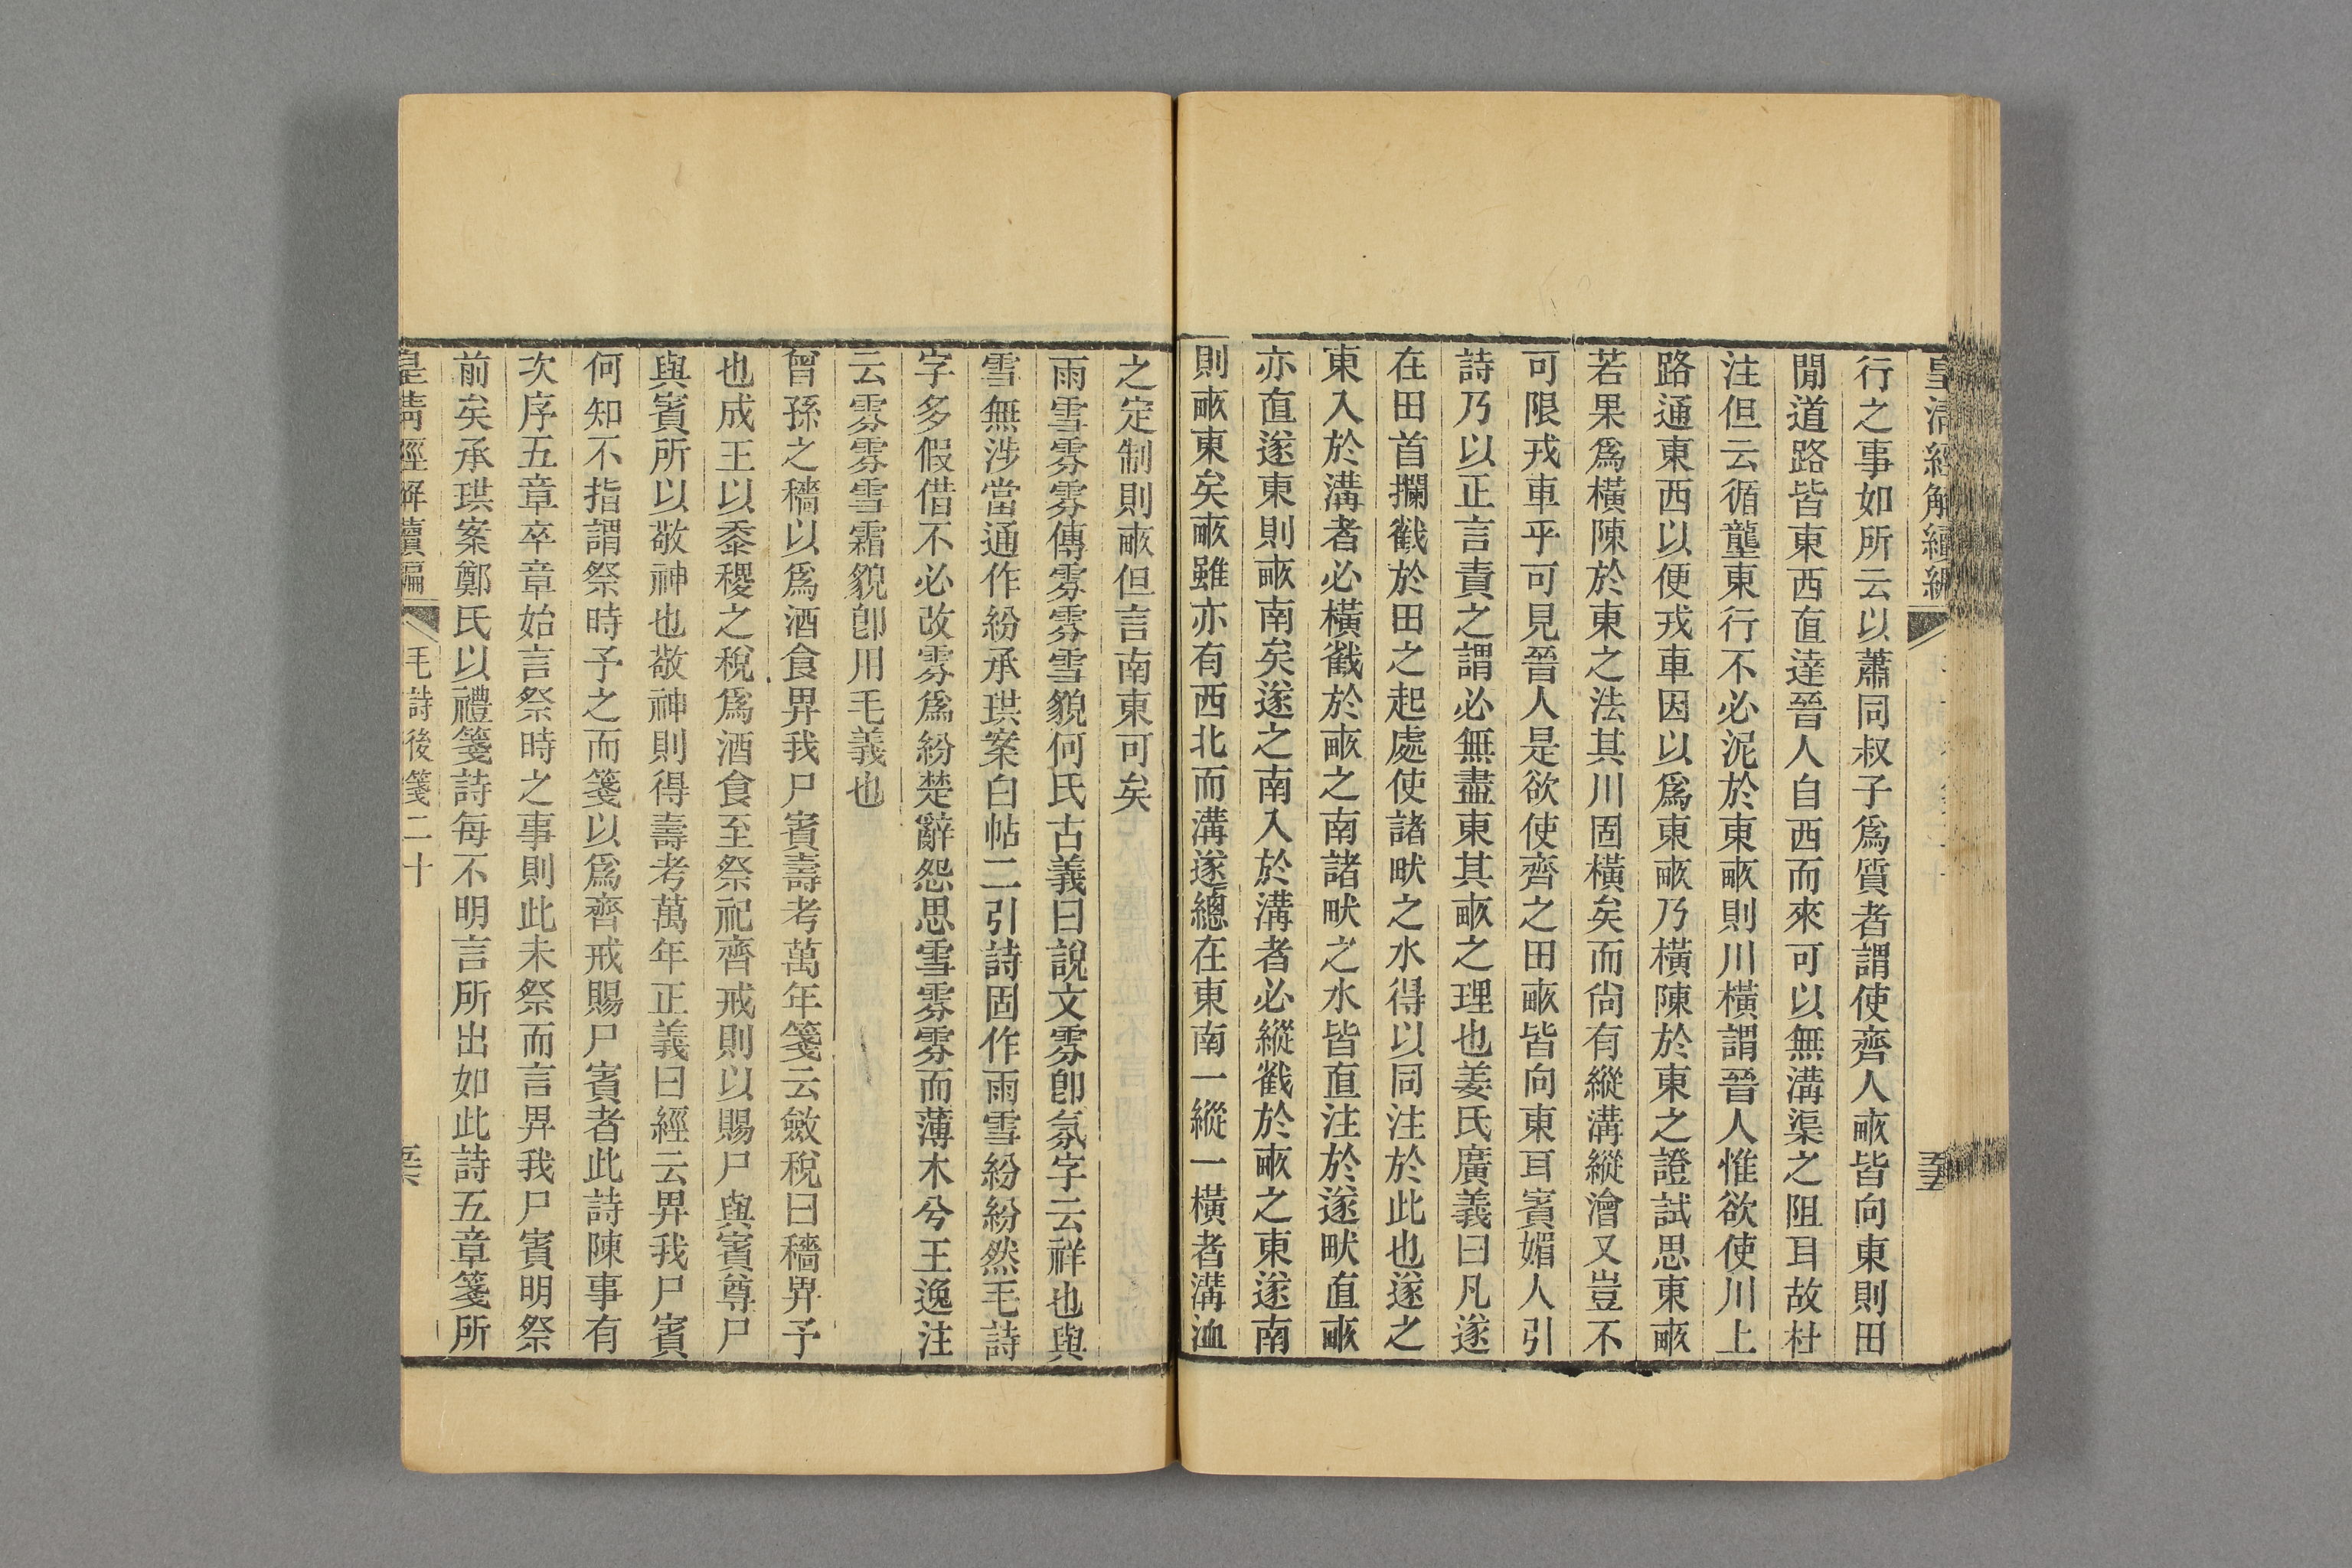 皇清經解續編
行之事如所云以蕭同叔子爲質者謂使齊人畞皆向東則田
閒道路皆東西直達晉人自西而來可以無溝渠之阻耳故杜
注但云循壟東行不必泥於東畞則川橫謂晉人惟欲使川上
路通東西以便戎車因以爲東畞乃橫陳於東之證試思東畞
若果爲橫陳於東之法其川固橫矣而尙有縱溝縱澮又豈不
可限戎車乎可見晉人是欲使齊之田畞皆向東耳賓媚人引
詩乃以正言責之謂必無盡東其畞之理也姜氏廣義曰凡遂
在田首攔截於田之起處使諸畎之水得以同注於此也遂之
東入於溝者必橫截於畞之南諸畎之水皆直注於遂畎直畞
亦直遂東則畞南矣遂之南入於溝者必縱截於畞之東遂南
則畞東矣畞雖亦有西北而溝遂總在東南一縱一橫者溝洫
之定制則畞但言南東可矣
雨雪雰雰傳雰雰雪貌何氏古義曰說文雰卽氛字云祥也與
雪無涉當通作紛承珙案白帖二引詩固作雨雪紛紛然毛詩
字多假借不必改雰爲紛楚辭怨思雪雰雰而薄木兮王逸注
云雰雰雪霜貌卽用毛義也
曾孫之穡以爲酒食畀我尸賓壽考萬年箋云斂稅曰穡畀予
也成王以黍稷之稅爲酒食至祭祀齊戒則以賜尸與賓尊尸
與賓所以敬神也敬神則得壽考萬年正義曰經云畀我尸賓
何知不指謂祭時予之而箋以爲齊戒賜尸賓者此詩陳事有
次序五章卒章始言祭時之事則此未祭而言畀我尸賓明祭
前矣承珙案鄭氏以禮箋詩每不明言所出如此詩五章箋所
皇清經解續編 毛詩後箋二十